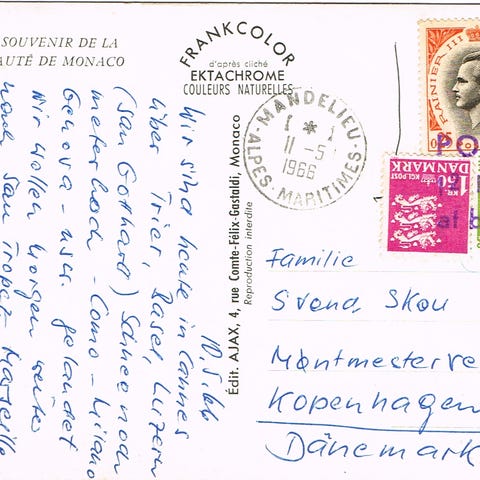 SOUVENIR DE LA
AUTÉ DE MONACO
FRANKCOLOR
d'après cliché
EKTACHROME
COULEURS NATURELLES
MANDELIEU
11-5
1966
ALPES-MARITIMES
RAINIER III
PO
DANMARK
KGL POST
1
af
Edit. AJAX, 4, rue Comte-Félix-Gastaldi, Monaco
Reproduction interdite
10.5.66
Wir sind heute in Cannes
über Trier, Basel, Luzern
(San Gothard) Schnee noch
meterhoch - Como - Milano
Genova - usw. gelandet
Wir wollen morgen weiter
nach San Tropez - Marseille
Familie
Svend Skou
Møntmesterve
Kopenhagen
Dänemark